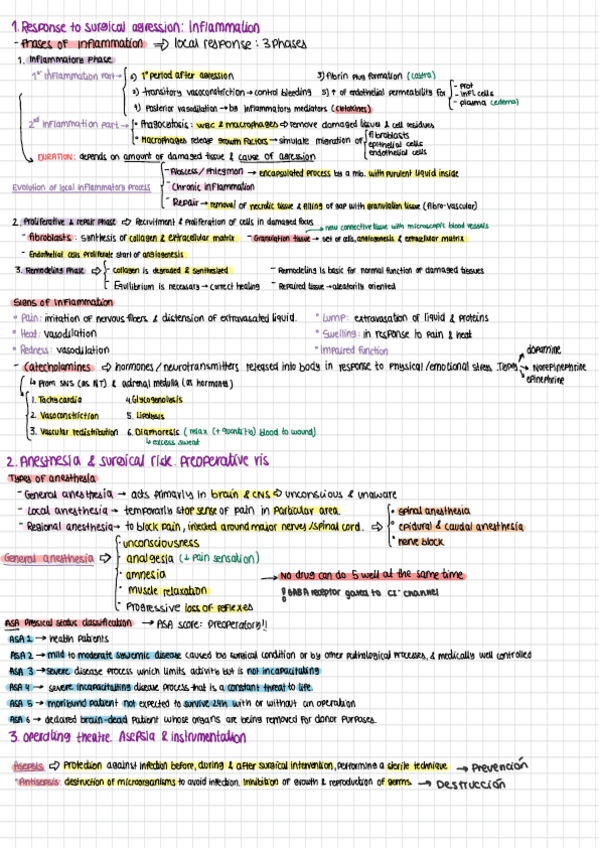 1. Response to surgical agression: inflammation
- Phases of inflammation ⇒ local response: 3 phases
1. Inflammatory Phase
1st inflammation part → 1) 1st period after agression 3) Fibrin plug formation (costra)
2) transitory vasoconstriction → control bleeding 5) ↑ of endothelial permeability for - prot - infl. cells - plasma (edema)
4) Posterior vasodilation → by inflammatory mediators (citokines)
2nd inflammation part → Phagocitosis: WBC & macrophages ⇒ remove damaged tissues & cell residues
Macrophages release growth factors → simulate migration of fibroblasts epithelial cells endothelial cells
DURATION: depends on amount of damaged tissue & cause of agression
Evolution of local inflammatory process
- Abscess/Phlegmon → encapsulated process by a mb. with purulent liquid inside
- Chronic inflammation
- Repair → removal of necrotic tissue & filling of gap with granulation tissue (fibro-vascular)
2. Proliferative & repair phase ⇒ Recruitment & Proliferation of cells in damaged focus
new connective tissue with microscopic blood vessels
- Fibroblasts: synthesis of collagen & extracellular matrix - Granulation tissue → set of cells, angiogenesis & extracellular matrix
- Endothelial cells proliferate start of angiogenesis
3. Remodeling Phase ⇒ - collagen is degraded & synthesized - Remodeling is basic for normal function of damaged tissues
- Equilibrium is necessary → correct healing - Repaired tissue → aleatorily oriented
Signs of inflammation
° Pain: irritation of nervous fibers & distension of extravasated liquid. ° Lump: extravasation of liquid & proteins
° Heat: vasodilation ° Swelling: in response to pain & heat
° Redness: vasodilation ° Impaired function
- Catecholamines → hormones/neurotransmitters released into body in response to physical/emotional stress. Types dopamine Norepinephrine epinephrine
From SNS (as NT) & adrenal medulla (as hormones)
1. Tachycardia 4. Glycogenolysis
2. Vasoconstriction 5. Lipolysis
3. Vascular redistribution 6. Diaphoresis
↳ excess sweat
2. Anesthesia & surgical risk. Preoperative vis
Types of anesthesia
- General anesthesia → acts primarily in brain & CNS ⇒ unconscious & unaware
- Local anesthesia → temporarily stop sense of pain in particular area.
- Regional anesthesia → to block pain, injected around major nerves/spinal cord. ⇒
• spinal anesthesia
• epidural & caudal anesthesia
• nerve block
General anesthesia ⇒
- unconsciousness
- analgesia (↓ pain sensation)
- amnesia → No drug can do 5 well at the same time
- muscle relaxation ! GABA receptor gated to Cl⁻ channel
- Progressive loss of reflexes
ASA Physical status classification → ASA score: Preoperatory!!
ASA 1 → health patients
ASA 2 → mild to moderate systemic disease caused by surgical condition or by other pathological processes, & medically well controlled
ASA 3 → severe disease process which limits activity but is not incapacitating
ASA 4 → severe incapacitating disease process that is a constant threat to life.
ASA 5 → moribund patient not expected to survive 24h with or without an operation
ASA 6 → declared brain-dead patient whose organs are being removed for donor purposes.
3. Operating theatre. Asepsia & instrumentation
Asepsis ⇒ Protection against infection before, during & after surgical intervention, performing a sterile technique → Prevención
° Antisepsis: destruction of microorganisms to avoid infection. Inhibition of growth & reproduction of germs → Destrucción